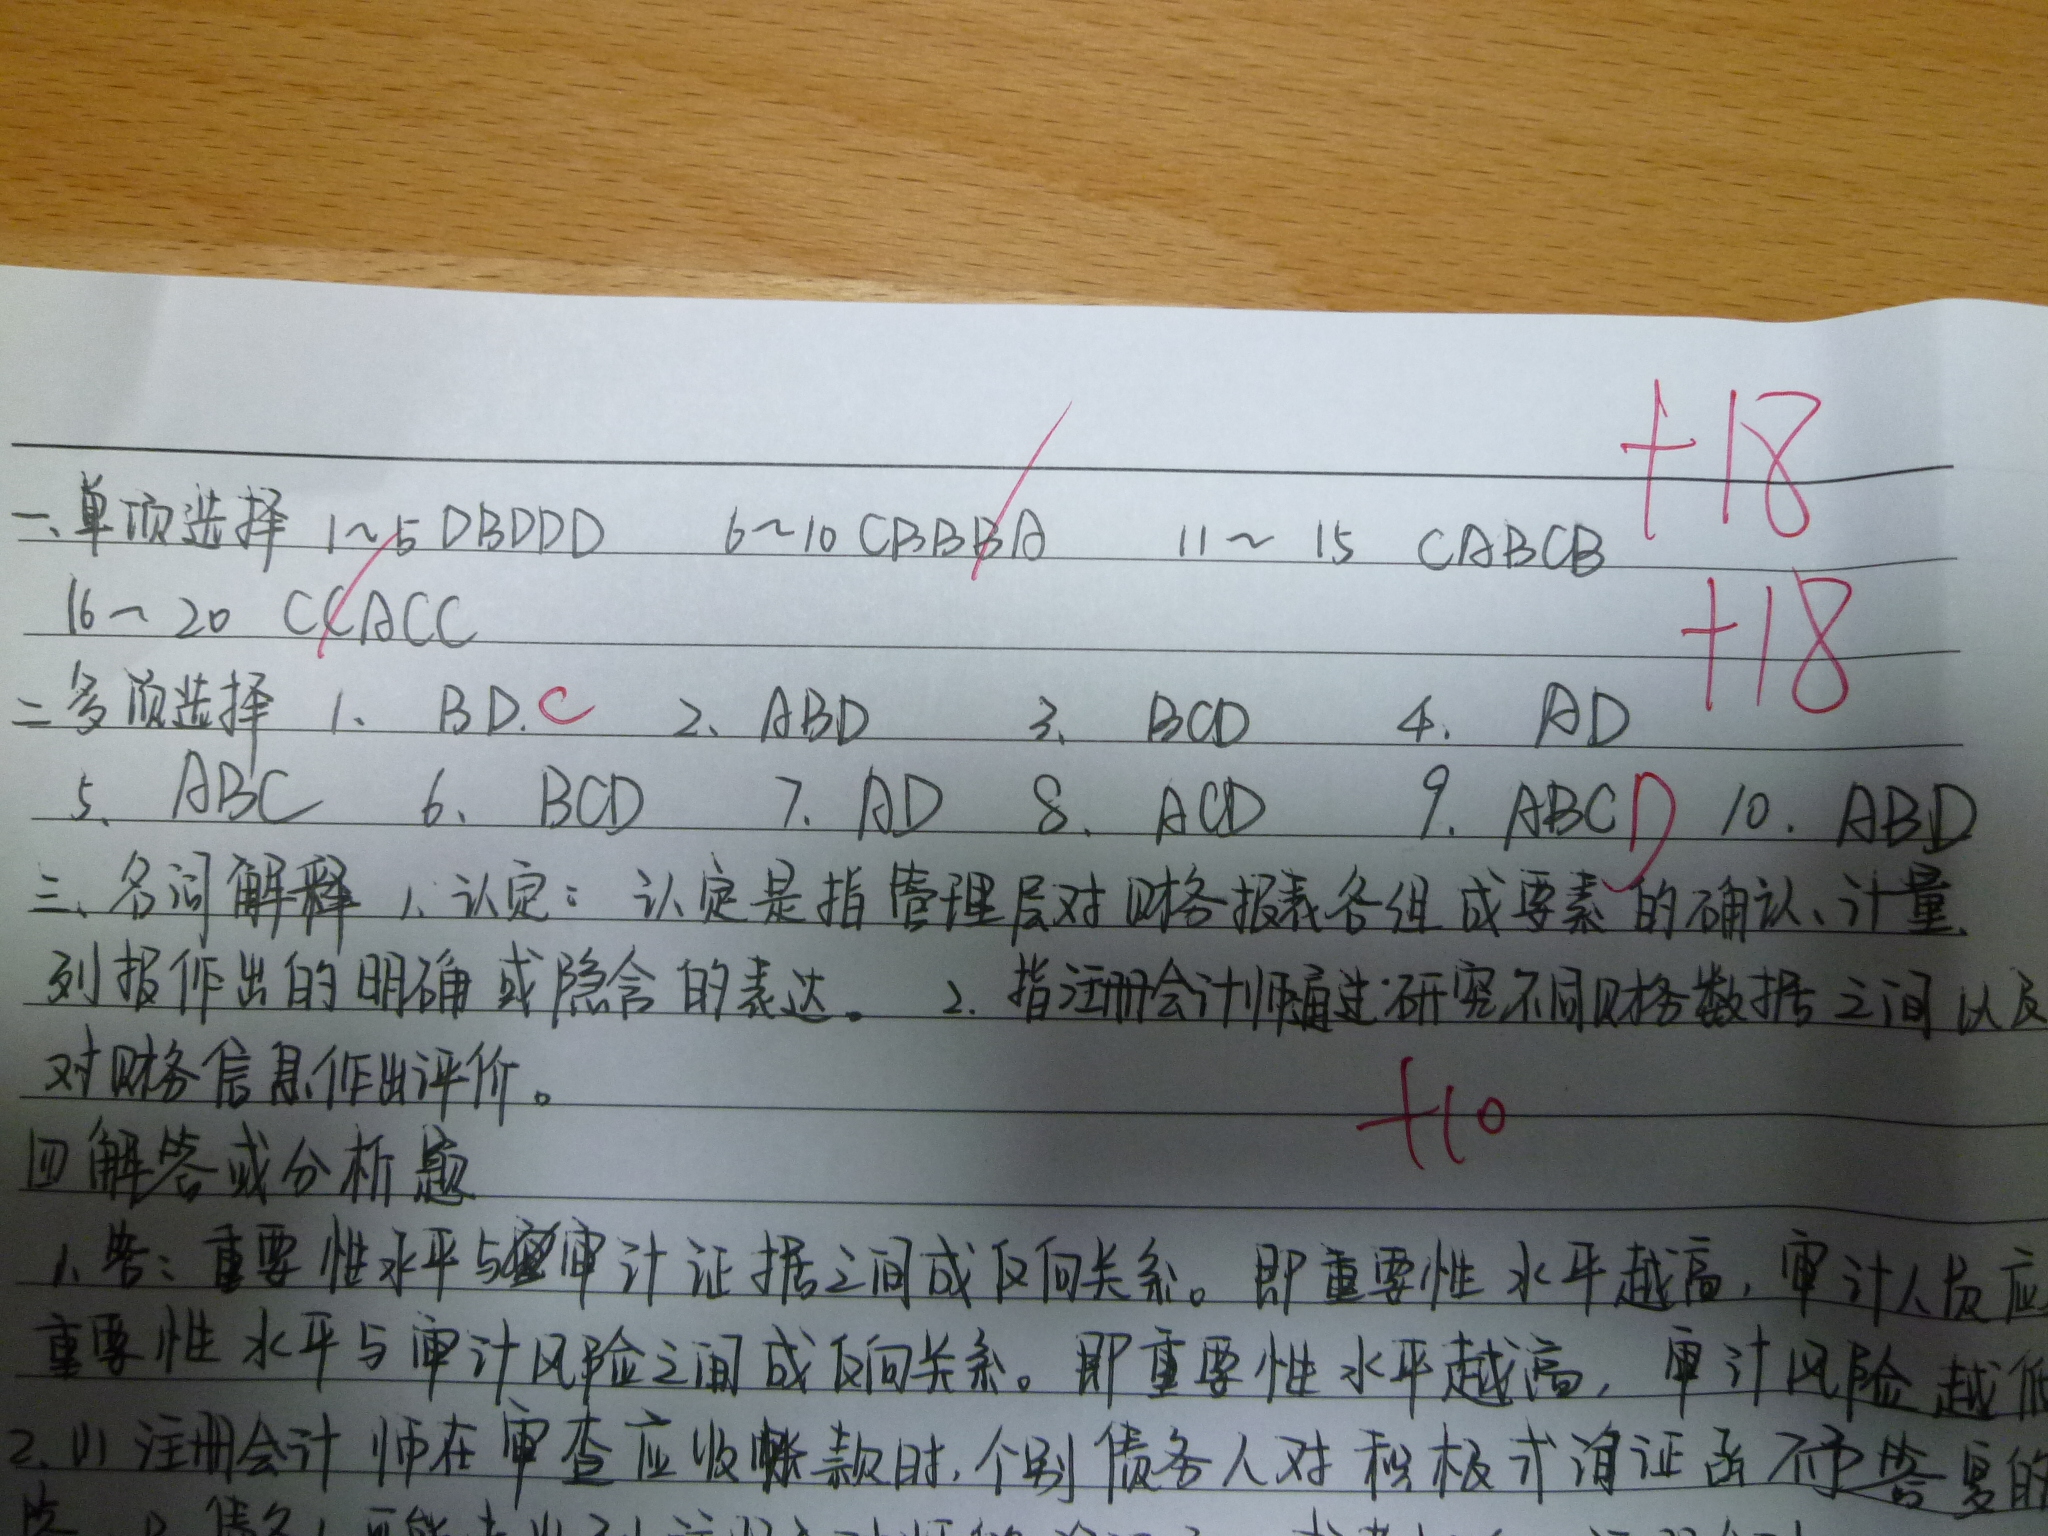 +18
一、单项选择 1~5 DBDDD 6~10 CBBBA 11~15 CABCB
16~20 CCACC
+18
二多项选择 1、BD.C 2、ABD 3、BCD 4、AD
5、ABC 6、BCD 7、AD 8、ACD 9.ABCD 10.ABD
三、名词解释 1、认定:认定是指管理层对财务报表各组成要素的确认、计量、
列报作出的明确或隐含的表达。 2、指注册会计师通过研究不同财务数据之间以及
对财务信息作出评价。
+10
四解答或分析题
1、答:重要性水平与审计证据之间成反向关系。即重要性水平越高,审计人员应
重要性水平与审计风险之间成反向关系。即重要性水平越高,审计风险越低
2.(1)注册会计师在审查应收账款时,个别债务人对积极式询证函不予答复的